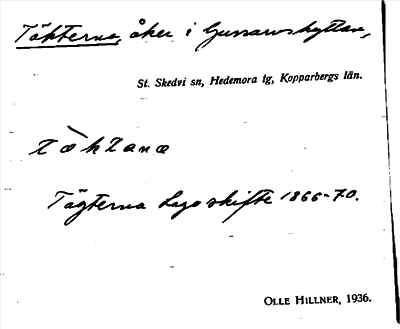 Täkterna, åker i Gussarvshyttan,
St. Skedvi sn, Hedemora tg, Kopparbergs län.
tæ̀ktana
Tägterna Laga skifte 1866-70.
OLLE HILLNER, 1936.